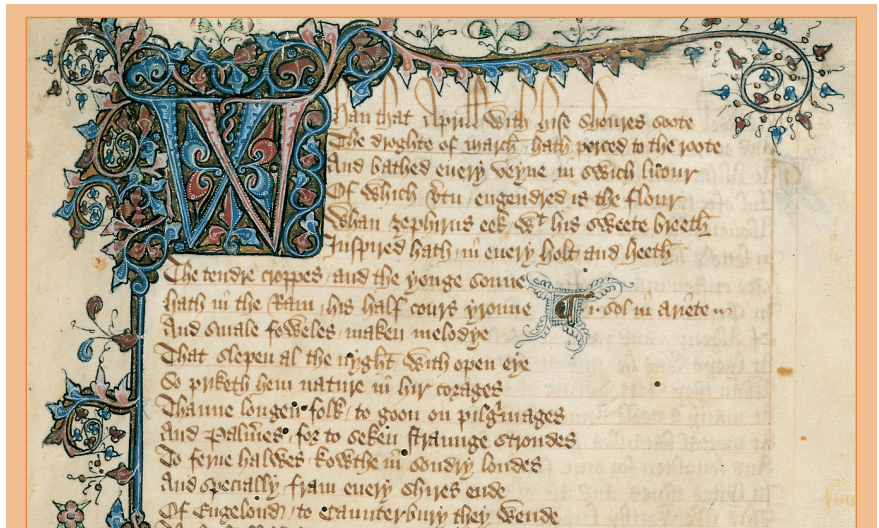 Whan that Aprill with hise shoures soote
The droghte of march hath perced to the roote
And bathed euery veyne in swich licour
Of which vtu engendred is the flour
Whan zephirus eek wt his sweete breeth
Inspired hath in euery holt and heeth
The tendre croppes / and the yonge sonne
hath in the Ram / his half cours yronne
i. sol in ariete
And smale foweles / maken melodye
That slepen al the nyght with open eye
So priketh hem nature in hir corages
Thanne longen folk / to goon on pilgrimages
And Palmeres for to seken straunge strondes
To ferne halwes / kowthe in sondry londes
And specially / fram euery shires ende
Of Engelond / to Caunterbury they wende